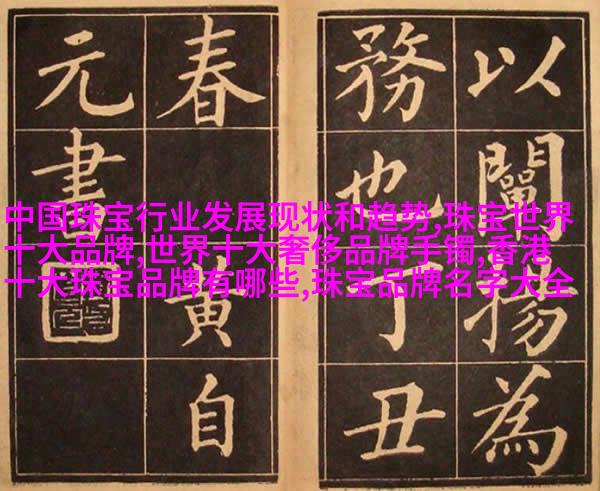 中国珠宝行业发展现状和趋势,珠宝世界
十大品牌,世界十大奢侈品牌手镯,香港
十大珠宝品牌有哪些,珠宝品牌名字大全
以闡揚為
務也丁丑
春 黃自
元書